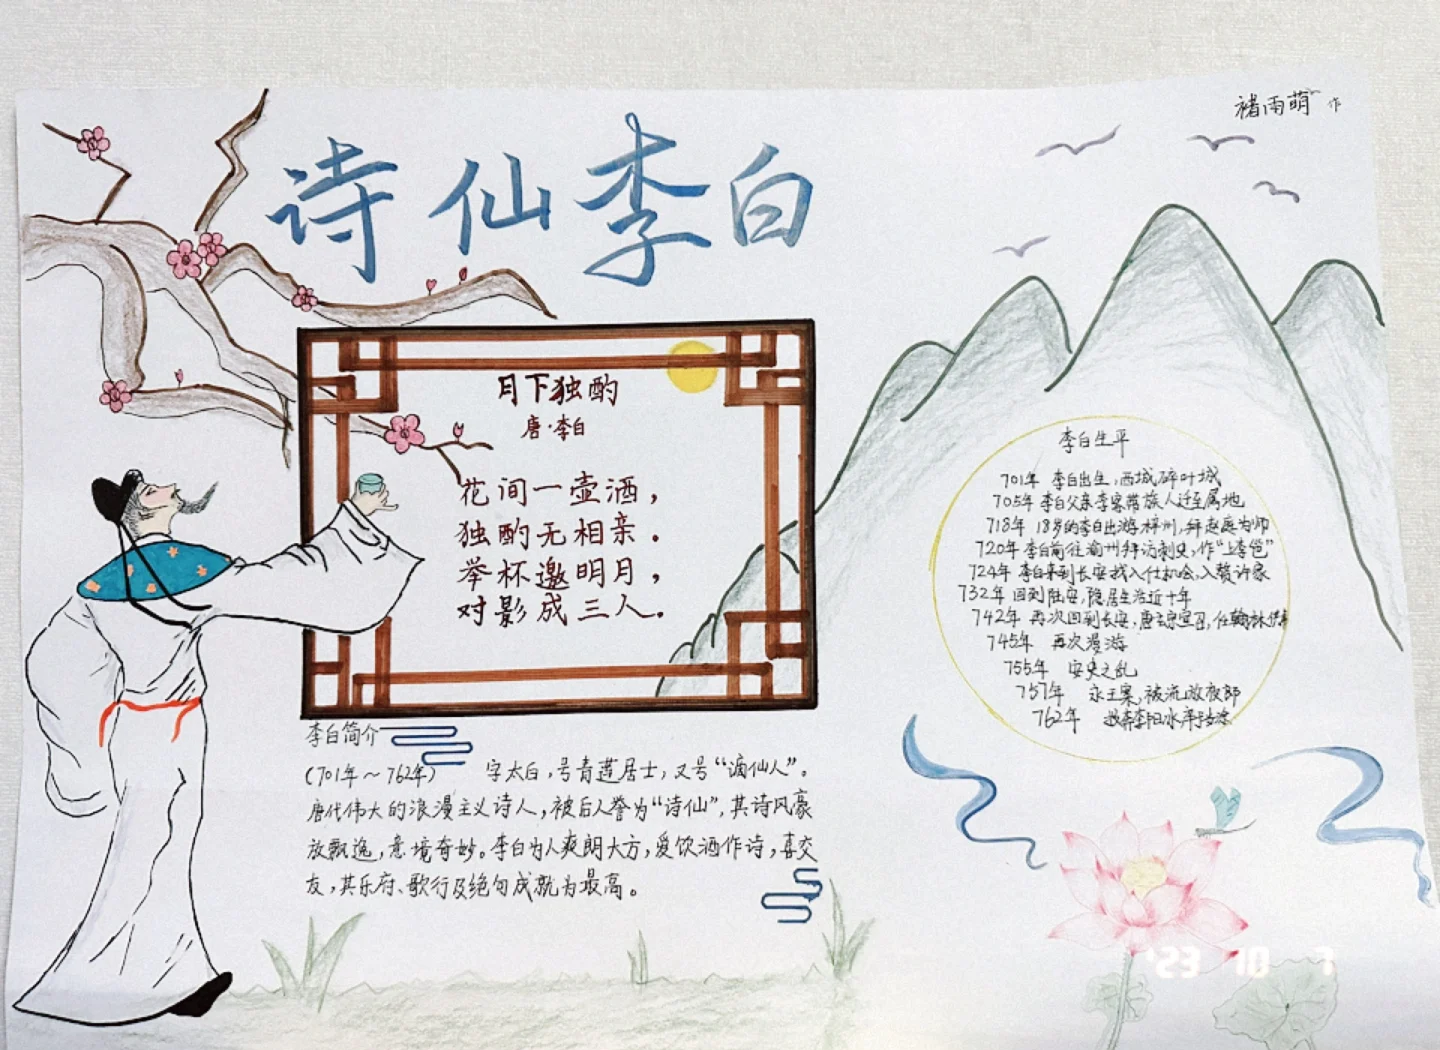 褚雨萌 作
诗仙李白
月下独酌
唐·李白
花间一壶酒，
独酌无相亲。
举杯邀明月，
对影成三人。
李白简介
(701年～762年) 字太白，号青莲居士，又号“谪仙人”。
唐代伟大的浪漫主义诗人，被后人誉为“诗仙”，其诗风豪
放飘逸，意境奇妙。李白为人爽朗大方，爱饮酒作诗，喜交
友，其乐府、歌行及绝句成就为最高。
李白生平
701年 李白出生，西域碎叶城
705年 李白父亲李客带族人迁至属地
718年 18岁的李白出游梓州，拜赵蕤为师
720年 李白前往渝州拜访刺史，作“上李邕”
724年 李白来到长安找入仕机会，入赘许家
732年 回到陆安，隐居生活近十年
742年 再次回到长安，唐玄宗宣召，任翰林供奉
745年 再次漫游
755年 安史之乱
757年 永王案，被流放夜郎
762年
'23 10 7